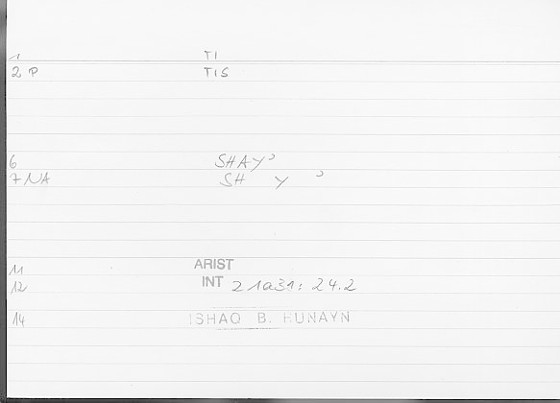 1 TI
2 P TIS
6 SHAYʾ
7 NA SH Y ʾ
11 ARIST
12 INT 21a31: 24.2
14 ISHAQ B. HUNAYN